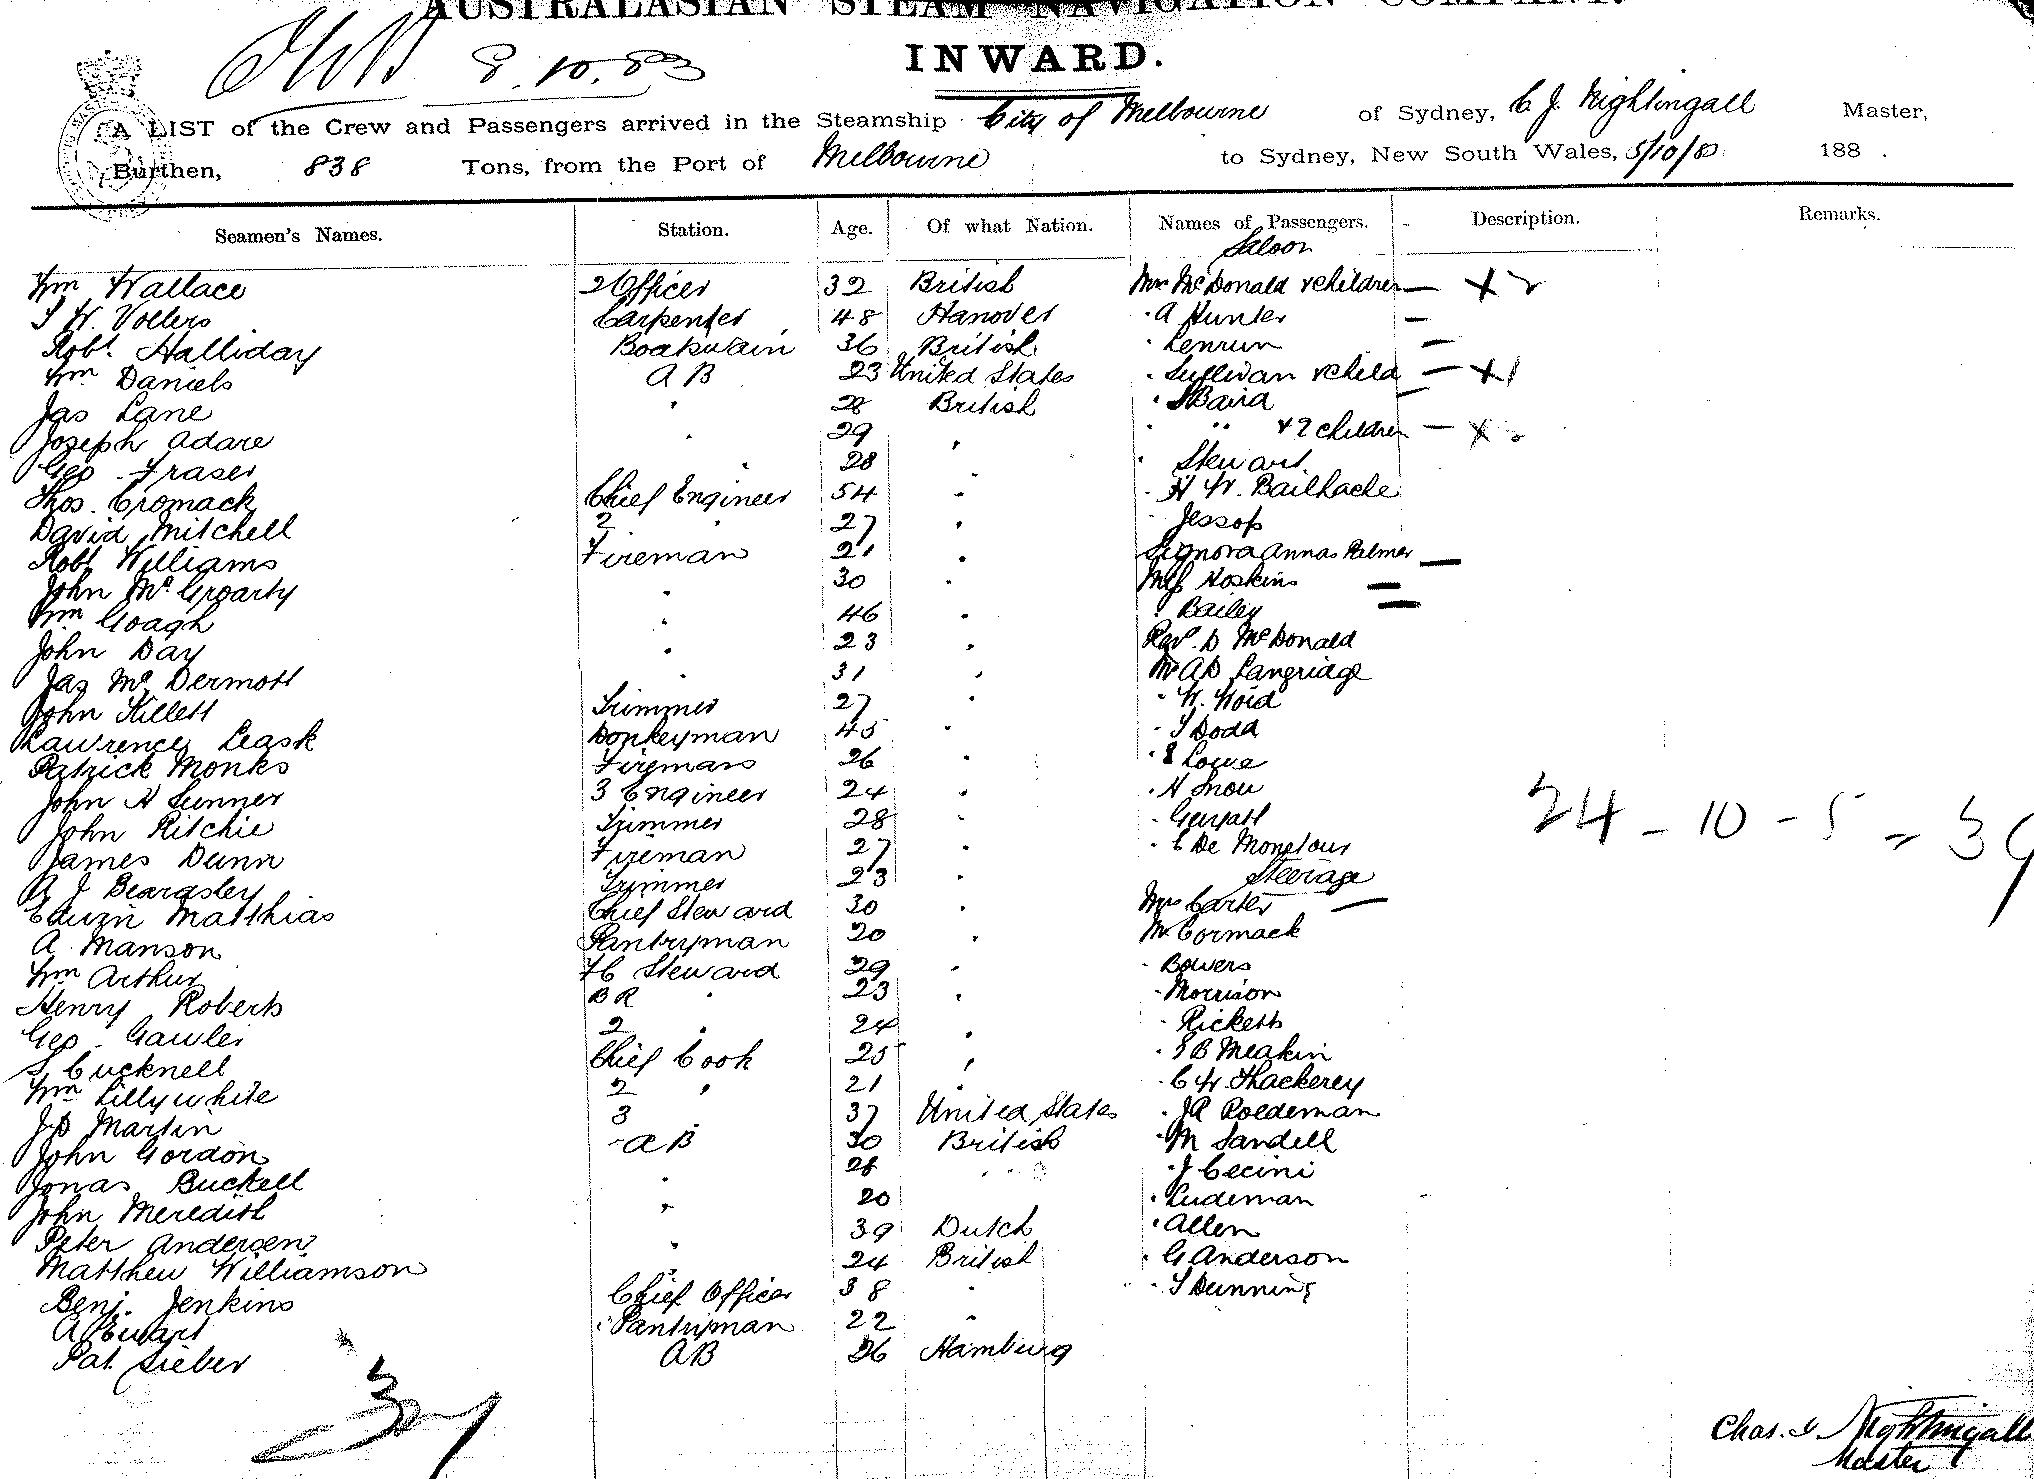 AUSTRALASIAN STEAM NAVIGATION COMPANY.
8.10.83
INWARD.
A LIST of the Crew and Passengers arrived in the Steamship City of Melbourne of Sydney, C J. Nightingall Master,
Burthen, 838 Tons, from the Port of Melbourne to Sydney, New South Wales, 5/10/83 188 .
Seamen's Names. Station. Age. Of what Nation. Names of Passengers. Description. Remarks.
Saloon
Wm Wallace 2 Officer 32 British Mrs McDonald & Children — X 2
J W. Vollers Carpenter 48 Hanover " A Hunter —
Robt. Halliday Boatswain 36 British " —
Wm Daniels A B 23 United States " Sullivan & Child — X 1
Jas Lane " 28 British " Baird —
Joseph Adare " 29 " " " & 2 Children — X 2
Geo Fraser " 28 " Stewart
Thos. Cromack Chief Engineer 54 " " H W. Bailhache
David Mitchell 2 " 27 " " Jessop
Robt Williams Fireman 21 " Signora Annas Palmer —
John McGroarty " 30 " Miss Hoskins —
Wm Goagh " 46 " " Bailey —
John Day " 23 " Revd. D McDonald
Jas McDermott " 31 " Mr A D Langridge
John Killett Trimmer 27 " " W.
Lawrence Leask Donkeyman 45 " " J Dodd
Patrick Monks Fireman 26 " " Lowe
John H Sunner 3 Engineer 24 " " H Snow
John Ritchie Trimmer 28 " "
James Dunn Fireman 27 " " C De
Steerage
J Beardsley Trimmer 23 "
Edwin Matthias Chief Steward 30 " Mrs Carter —
A. Manson Pantryman 20 " Mr Cormack
Wm Arthur FC Steward 29 " " Bowers
Henry Roberts BR " 23 " " Morrison
Geo. Gawler 2 " 24 " " Ricketts
S Cucknell Chief Cook 25 " " S B Meakin
Wm Lillywhite 2 " 21 " " C W Thackerey
J D Martin 3 37 United States " J R Roedeman
John Gordon A B 30 British " M Sandell
Jonas Buckell " 28 " " J Cecini
John Meredith " 20 " Ludeman
Peter Andersen " 39 Dutch " Allen
Matthew Williamson " 24 British " G Anderson
Benj. Jenkins Chief Officer 38 " " J Dunning
A Ewart Pantryman 22 "
Pat Sieber AB 26 Hamburg
24 - 10 - 5 = 39
Chas. J Nightingall
Master